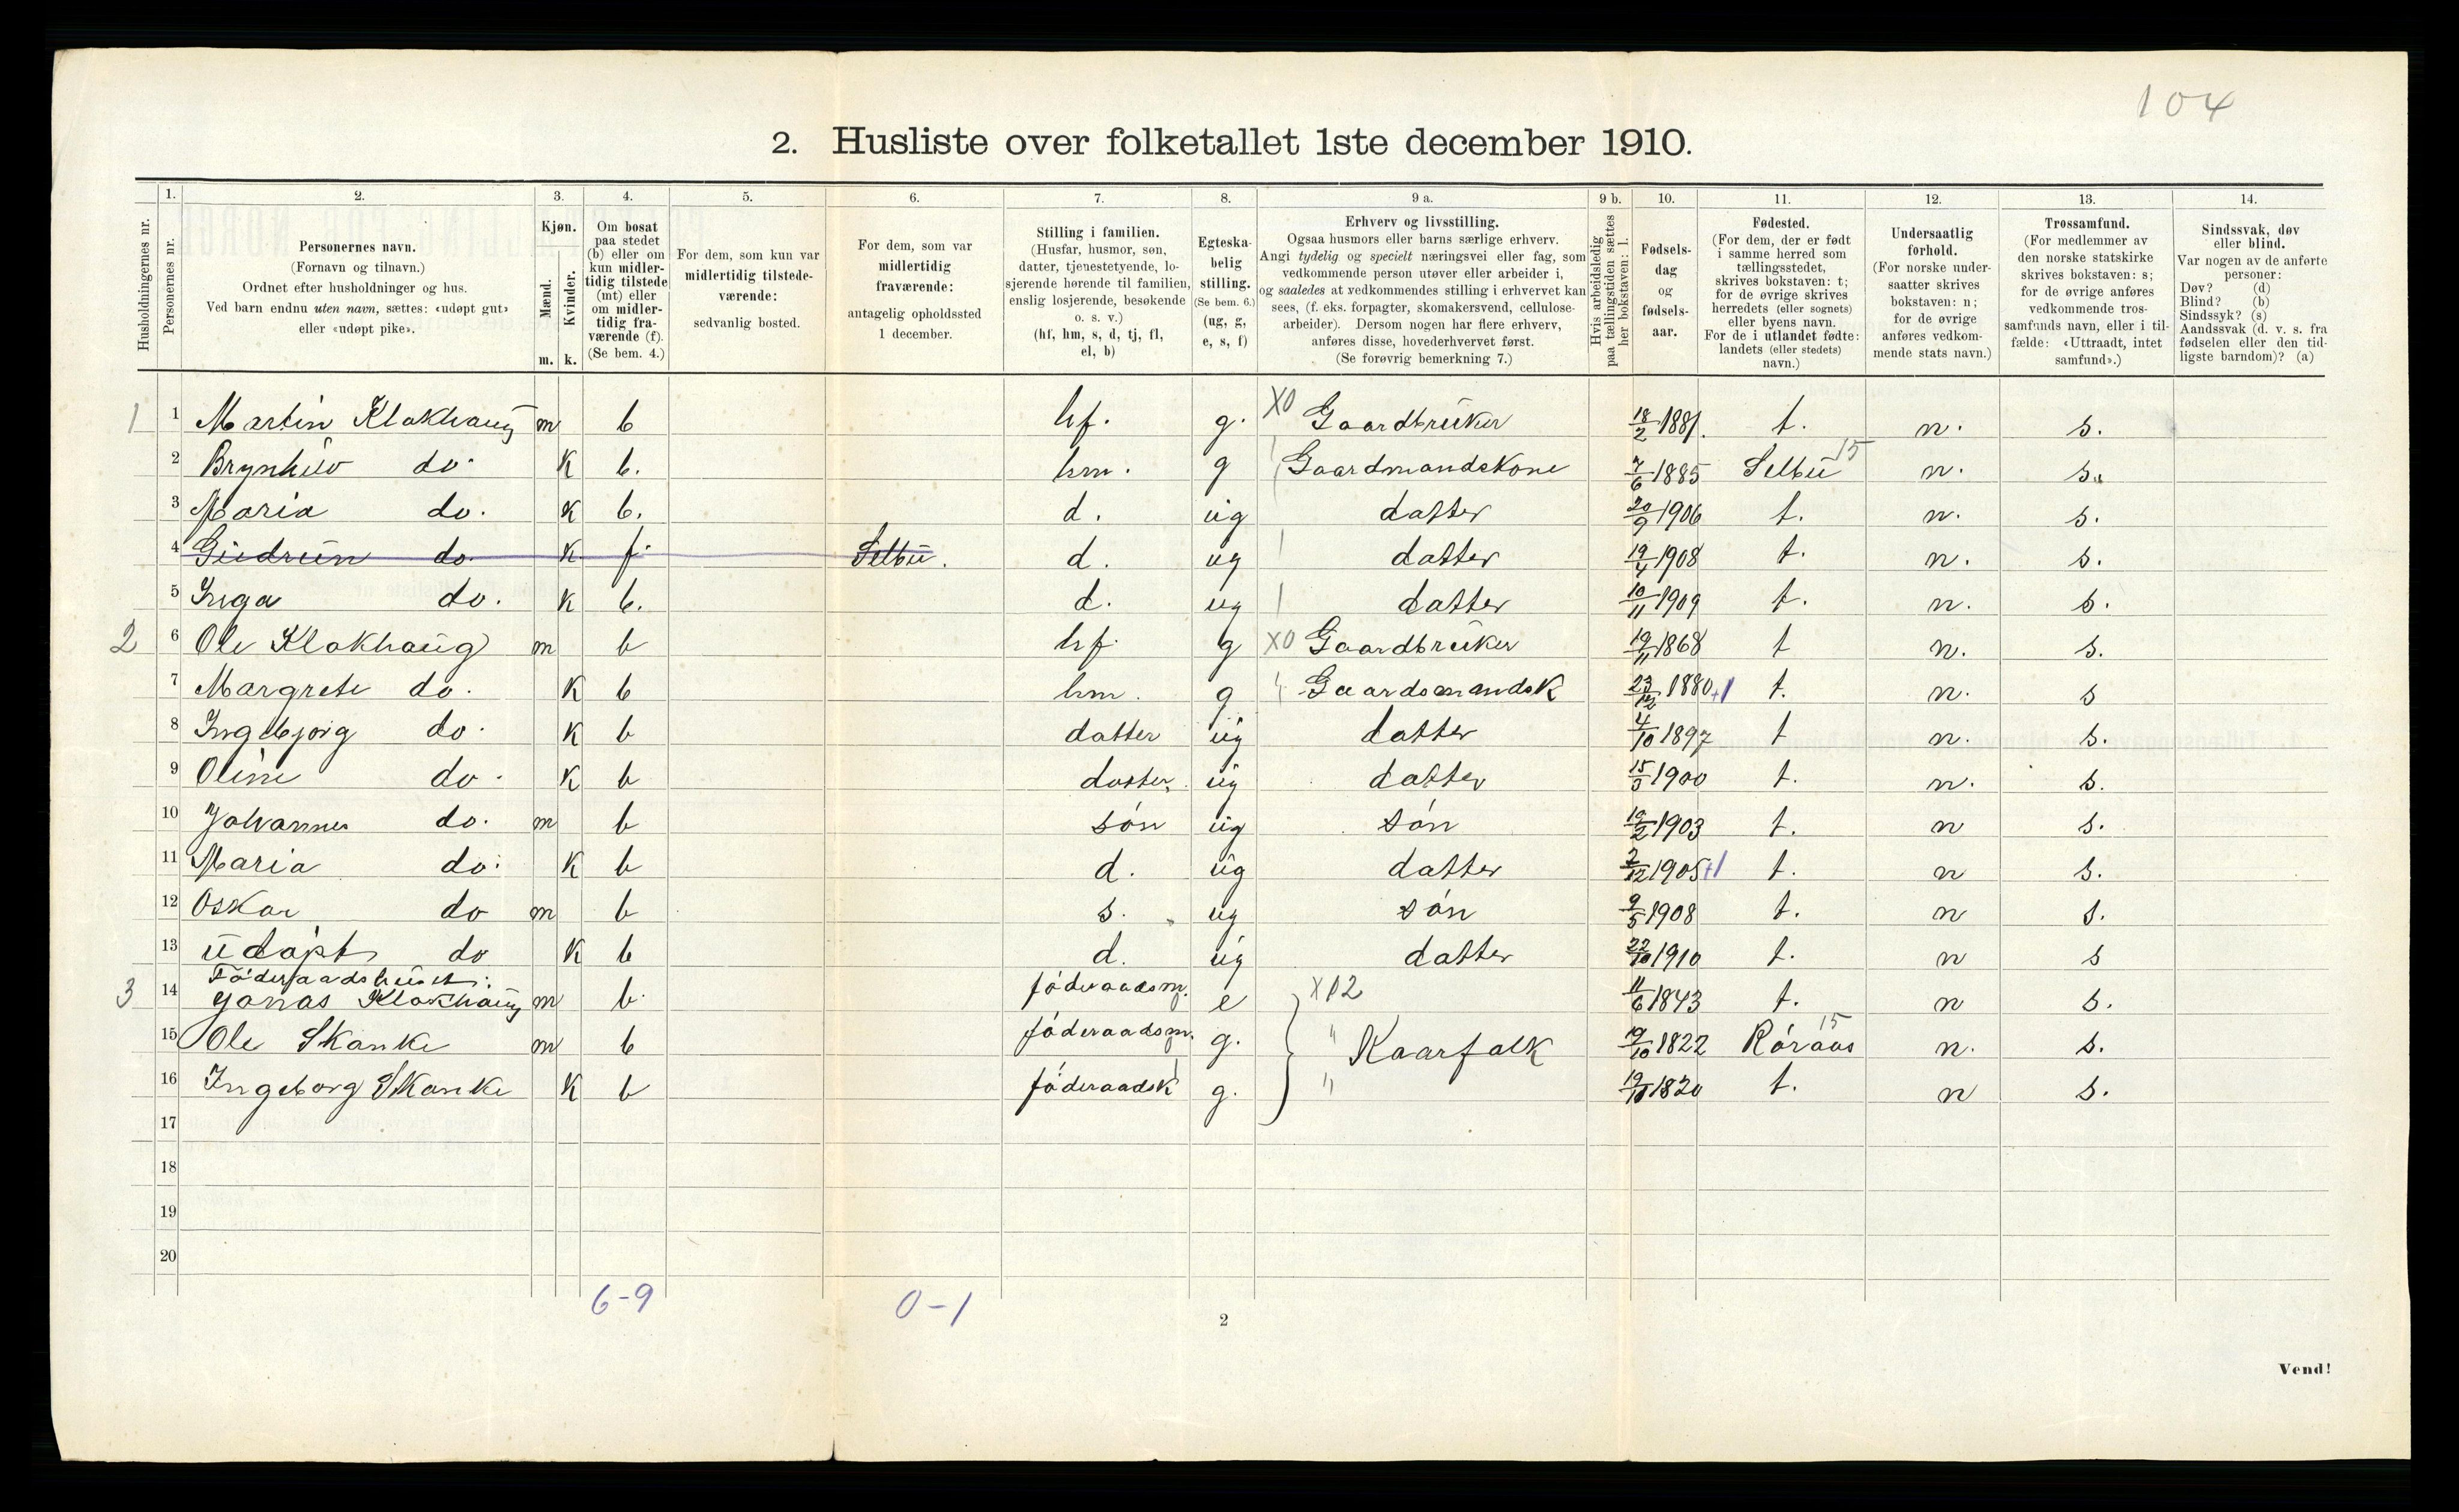 104
2. Husliste over folketallet 1ste december 1910.
Husholdningernes nr.
1. Personernes nr.
2. Personernes navn. (Fornavn og tilnavn.) Ordnet efter husholdninger og hus. Ved barn endnu uten navn, sættes: «udøpt gut» eller «udøpt pike».
3. Kjøn. Mænd. m. Kvinder. k.
4. Om bosat paa stedet (b) eller om kun midlertidig tilstede (mt) eller om midlertidig fraværende (f). (Se bem. 4.)
5. For dem, som kun var midlertidig tilstedeværende: sedvanlig bosted.
6. For dem, som var midlertidig fraværende: antagelig opholdssted 1 december.
7. Stilling i familien. (Husfar, husmor, søn, datter, tjenestetyende, losjerende hørende til familien, enslig losjerende, besøkende o. s. v.) (hf, hm, s, d, tj, fl, el, b)
8. Egteskabelig stilling. (Se bem. 6.) (ug, g, e, s, f)
9 a. Erhverv og livsstilling. Ogsaa husmors eller barns særlige erhverv. Angi tydelig og specielt næringsvei eller fag, som vedkommende person utøver eller arbeider i, og saaledes at vedkommendes stilling i erhvervet kan sees, (f. eks. forpagter, skomakersvend, cellulosearbeider). Dersom nogen har flere erhverv, anføres disse, hovederhvervet først. (Se forøvrig bemerkning 7.)
9 b. Hvis arbeidsledig paa tællingstiden sættes her bokstaven: l.
10. Fødselsdag og fødselsaar.
11. Fødested. (For dem, der er født i samme herred som tællingsstedet, skrives bokstaven: t; for de øvrige skrives herredets (eller sognets) eller byens navn. For de i utlandet fødte: landets (eller stedets) navn.)
12. Undersaatlig forhold. (For norske undersaatter skrives bokstaven: n; for de øvrige anføres vedkommende stats navn.)
13. Trossamfund. (For medlemmer av den norske statskirke skrives bokstaven: s; for de øvrige anføres vedkommende trossamfunds navn, eller i tilfælde: «Uttraadt, intet samfund».)
14. Sindssvak, døv eller blind. Var nogen av de anførte personer: Døv? (d) Blind? (b) Sindssyk? (s) Aandssvak (d. v. s. fra fødselen eller den tidligste barndom)? (a)
1 1 Martin Klokhaug m b hf. g. X0 Gaardbruker 18/2 1881. t. n. s.
2 do. K b. hm. g Gaardmandskone 7/6 1885 Selbu 15 n. s.
3 Maria do. K b. d. ug datter 20/9 1906 t. n. s.
4 Gudrun do. K f. Selbu. d. ug datter 19/4 1908 t. n. s.
5 Inga do. K b. d. ug datter 10/11 1909 t. n. s.
2 6 Ole Klokhaug m b hf. g X0 Gaardbruker 19/11 1868 t n. s.
7 Margrete do. K b hm. g " Gaardsmandsk 23/12 1880 +1 t. n. s
8 Ingebjørg do. K b datter ug datter 4/10 1897 t n. s.
9 Oline do. K b datter. ug datter 15/3 1900 t. n. s.
10 Johannes do. m b søn ug søn 19/2 1903 t. n s.
11 Maria do. K b d. ug datter 2/12 1905 +1 t. n s.
12 Oskar do m b s. ug søn 9/5 1908 t. n s.
13 udøpt do K b d. ug datter 22/10 1910 t. n s
Føderaadshuset:
3 14 Jonas Klokhaug m b. føderaadsm. e X12 11/6 1843 t. n s.
15 Ole Skanke m b føderaadsm. g. " Kaarfolk 19/10 1822 Røraas 15 n. s.
16 Ingeborg Skanke K b føderaadsk g. " 1820 t. n s.
17
18
19
20
6-9 0-1
2
Vend!